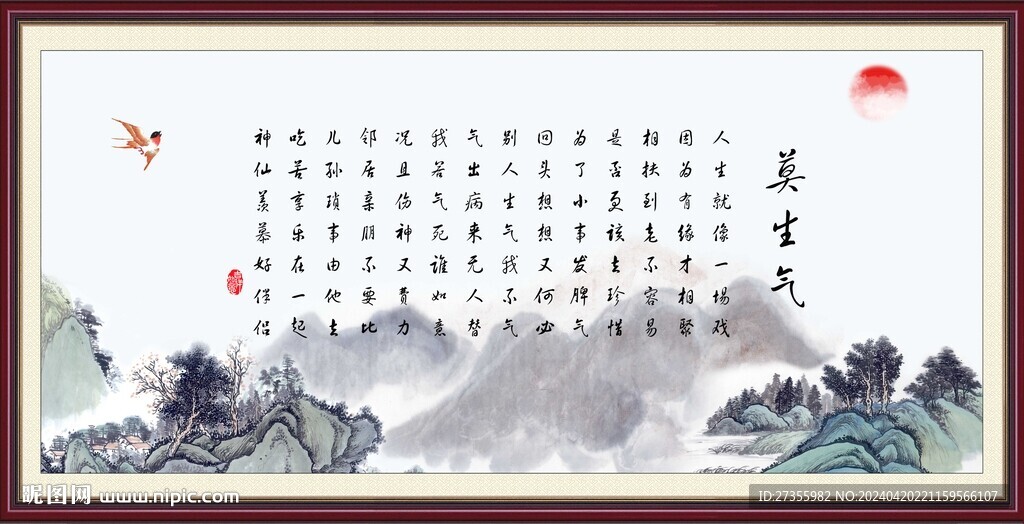 莫生气
人生就像一场戏
因为有缘才相聚
相扶到老不容易
是否更该去珍惜
为了小事发脾气
回头想想又何必
别人生气我不气
气出病来无人替
我若气死谁如意
况且伤神又费力
邻居亲朋不要比
儿孙琐事由他去
吃苦享乐在一起
神仙羡慕好伴侣
昵图网 www.nipic.com
ID:27355982 NO:20240420221159566107